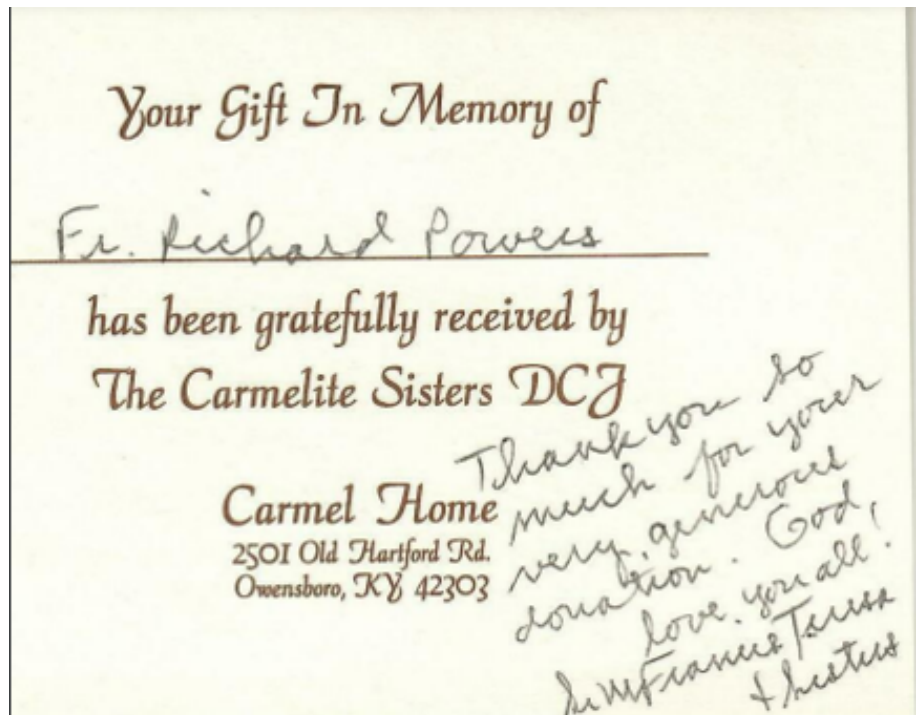 Your Gift In Memory of
Fr. Richard Powers
has been gratefully received by
The Carmelite Sisters DCJ
Carmel Home
2501 Old Hartford Rd.
Owensboro, KY 42303
Thank you so
much for your
very generous
donation. God,
love you all!
Sr. M Francis Teresa
& Sisters